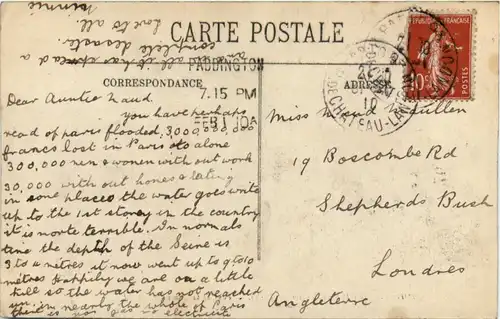 CARTE POSTALE
CORRESPONDANCE
ADRESSE
PADDINGTON
7.15 PM
FEB 1 10A
REPUBLIQUE FRANÇAISE
10c
Dear Auntie Maud.
You have perhaps
read of paris flooded. 3,000,000,000
francs lost in Paris alone
300,000 men & women with out work
30,000 with out homes & lating
in some places the water goes write
up to the 1st storey in the country
it is norte terrible. In normals
time the depth of the Seine is
3 to 4 mètres it now went up to 9 to 10
mètres Happily we are on a little
hill so the water has not reached
us in nearly the whole of Paris
there is no gas no electricity
and all it has spread a
complete desaster
Love to all.
Miss Maud Pullen
19 Boscombe Rd
Shepherds Bush
Londres
Angleterre